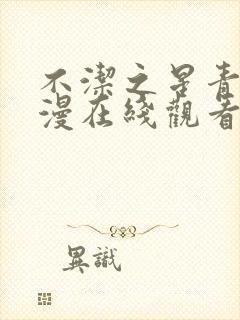 不潔之晷青
漫在綫觀看
異識